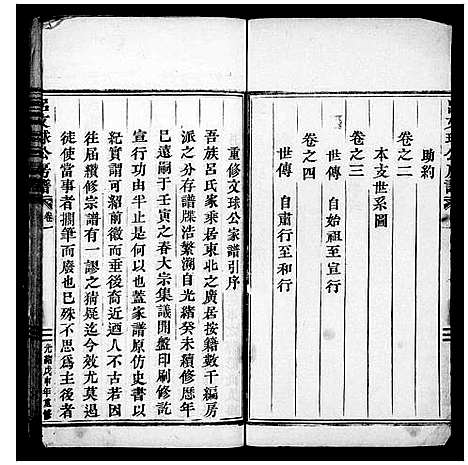 助約
卷之二
本支世系圖
卷之三
世傳 自始祖至宣行
卷之四
世傳 自肅行至和行
呂文球公房譜
重修文球公家譜引序
吾族呂氏家乘居東北之廣居按籍數千編房
派之分存譜牒浩繁溯自光緒癸未續修歷年
已遠嗣于壬寅之春大宗集議開盤印刷修訖
宣行功由半止是何以也蓋家譜原仿史書以
紀實詔前紹前徽而垂後裔近遒人不古若因
往屆續修宗譜有一謬之猜疑迄今效尤莫過
徒使當事者擱筆而廢也已殊不思為主後者
呂文球公房譜 卷一 光緒戊申年重修